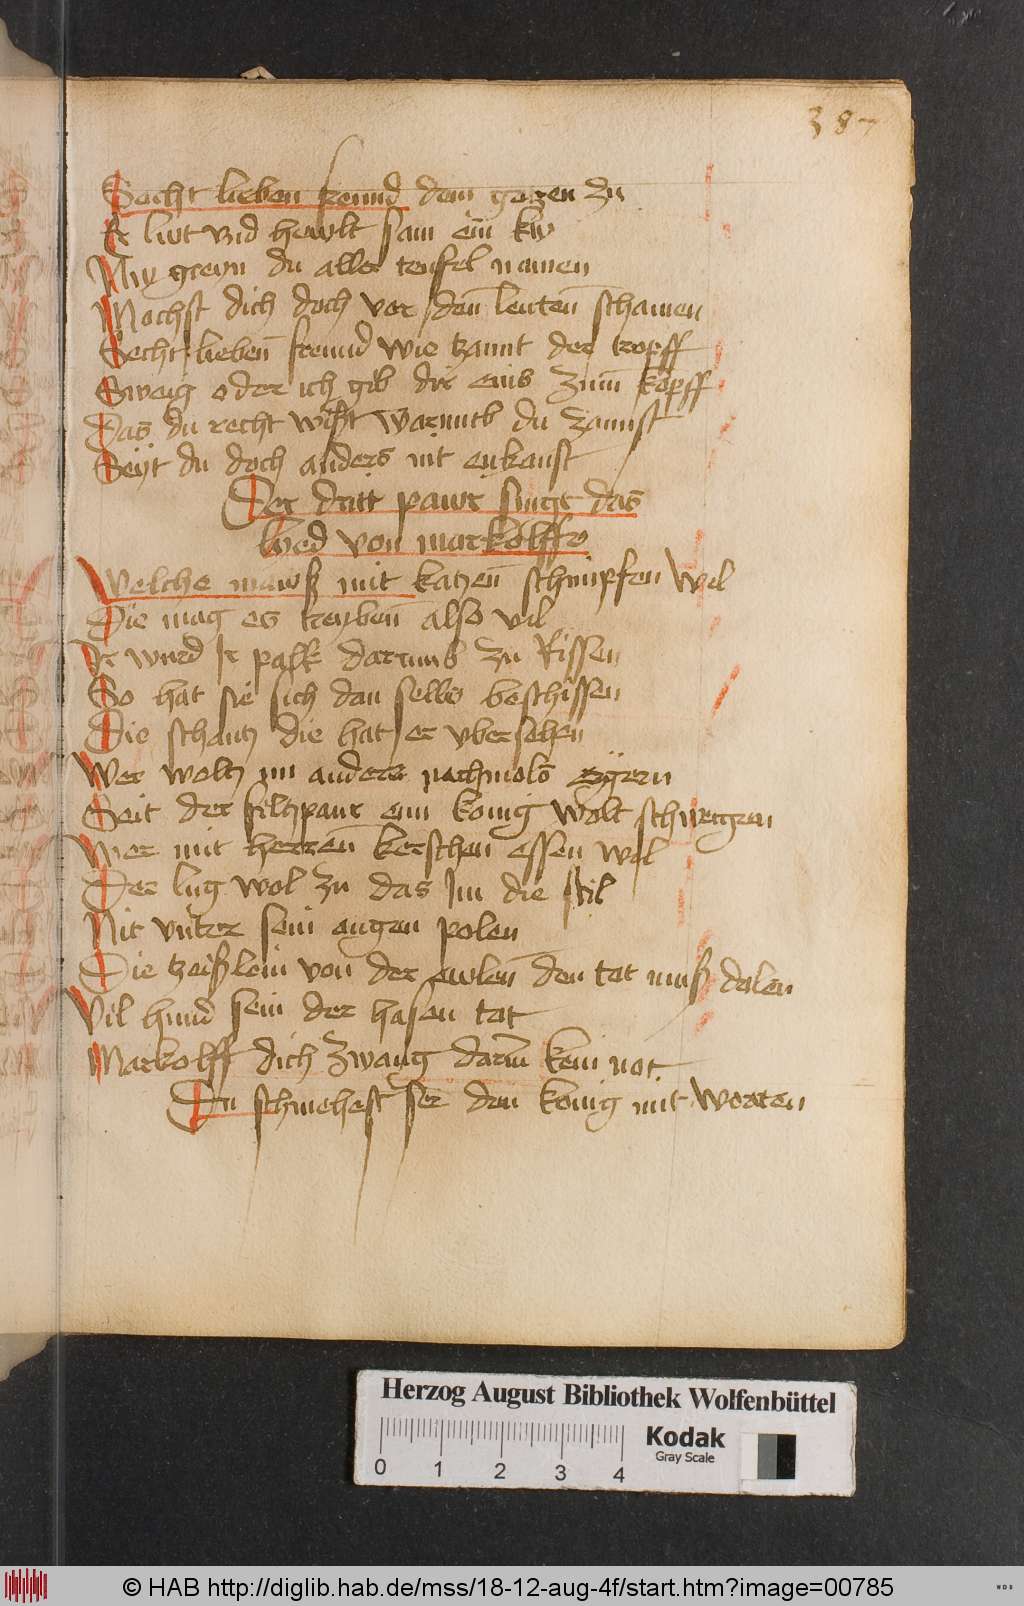 387
Secht lieben freund dem gogen zu
Er lut vnd hewlt sam ein kw
Nw greyn du aller teufel namen
Mochst dich doch vor den leuten schamen
Secht lieben freund wie tzannt der tropff
Sweig oder ich gib dir eins zum kopff
Das du recht wist warumb du zannst
Seyt du doch anders nit enkanst
Der dritt pawr singt das
lyed von markolffo
Welche mawß mit katzen schimpfen wil
Die mag es treyben also vil
Ir wurd Ir palk darumb zu Rissen
So hat sie sich dan selbs beschissen
Die schantz die hat er vbersehen
Wer woltz im anders nachmols
Seit der filtzpaur ein konig wolt
Wer mit herren kerschen essen wol
Der lug wol zu das Im die stil
Nit vnter sein augen polen
Die tzeißlein von der ewlen den tot muß dolen
Vil hund sein der hasen tot
Markolff dich zwang darum kein not
Du schmehest ser den konig mit worten
Herzog August Bibliothek Wolfenbüttel
Kodak
Gray Scale
0 1 2 3 4
© HAB http://diglib.hab.de/mss/18-12-aug-4f/start.htm?image=00785